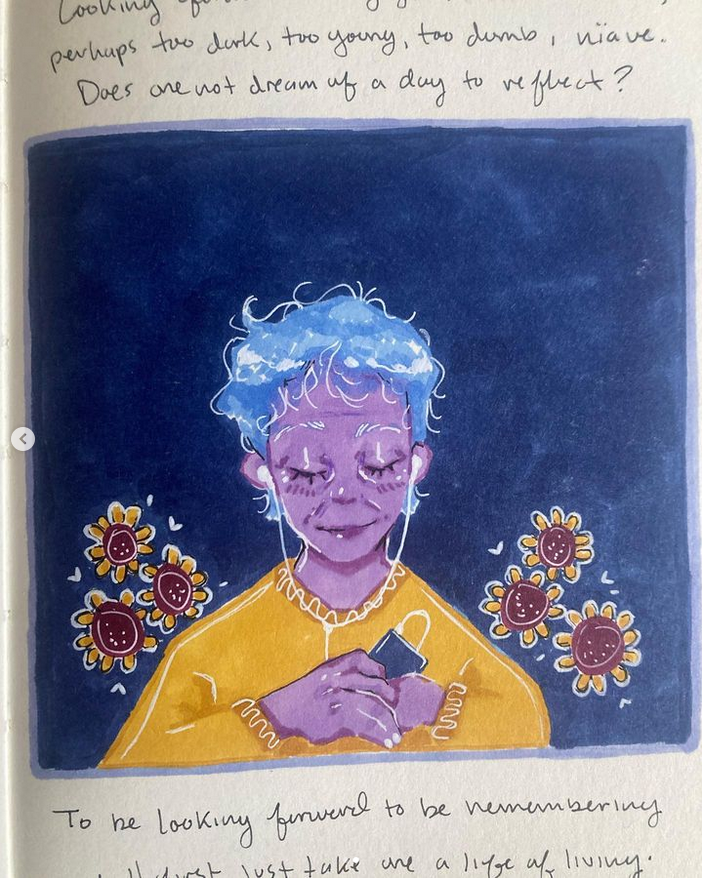 Looking
perhaps too dark, too young, too dumb, nïave.
Does one not dream of a day to reflect?
To be looking forward to be remembering
first just take me a life of living.